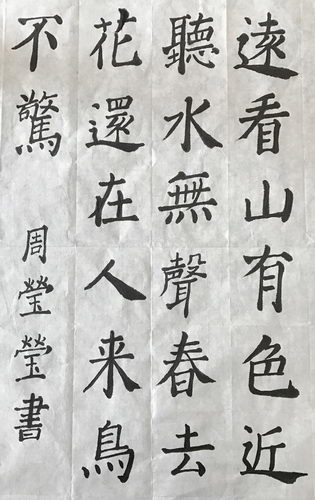 遠看山有色近
聽水無聲春去
花還在人来鳥
不驚
周瑩瑩書